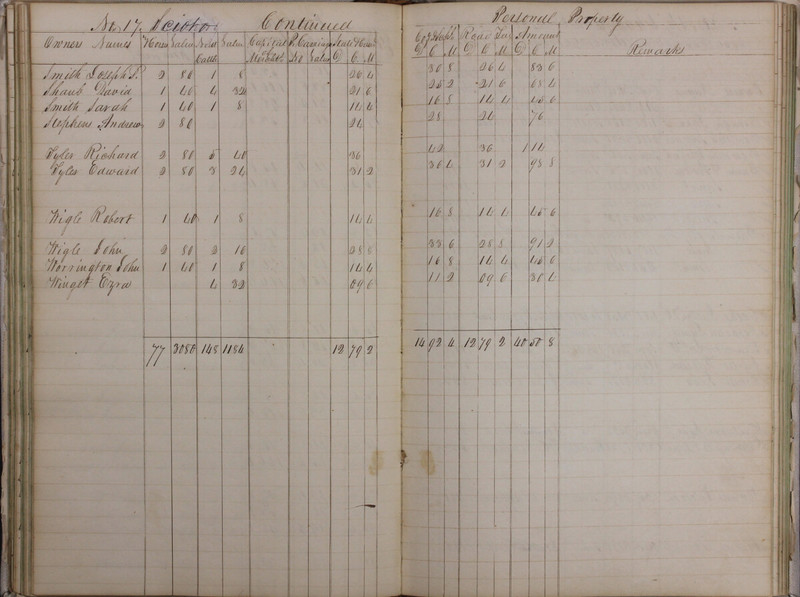 No 17 Scioto Continued Personell Property
Owners Names Horses Value Neat Cattle Value Capital Merchts P. Carriages No Value State & Canal D C M Co & Scholl D C M Road Tax D C M Amount D C M Remarks
Smith Joseph P. 2 80 1 8 26 4 30 8 26 4 83 6
Shaub David 1 40 4 32 21 6 25 2 21 6 68 4
Smith Sarah 1 40 1 8 14 4 16 8 14 4 45 6
Stephens Andrew 2 80 24 28 24 76
Tyler Richard 2 80 5 40 36 42 36 1 14
Tyler Edward 2 80 3 24 31 2 36 4 31 2 98 8
Wigle Robert 1 40 1 8 14 4 16 8 14 4 45 6
Wigle John 2 80 2 16 28 8 33 6 28 8 91 2
Worrington John 1 40 1 8 14 4 16 8 14 4 45 6
Winget Ezra 4 32 09 6 11 2 09 6 30 4
77 3080 148 1184 12 79 2 14 92 4 12 79 2 40 50 8